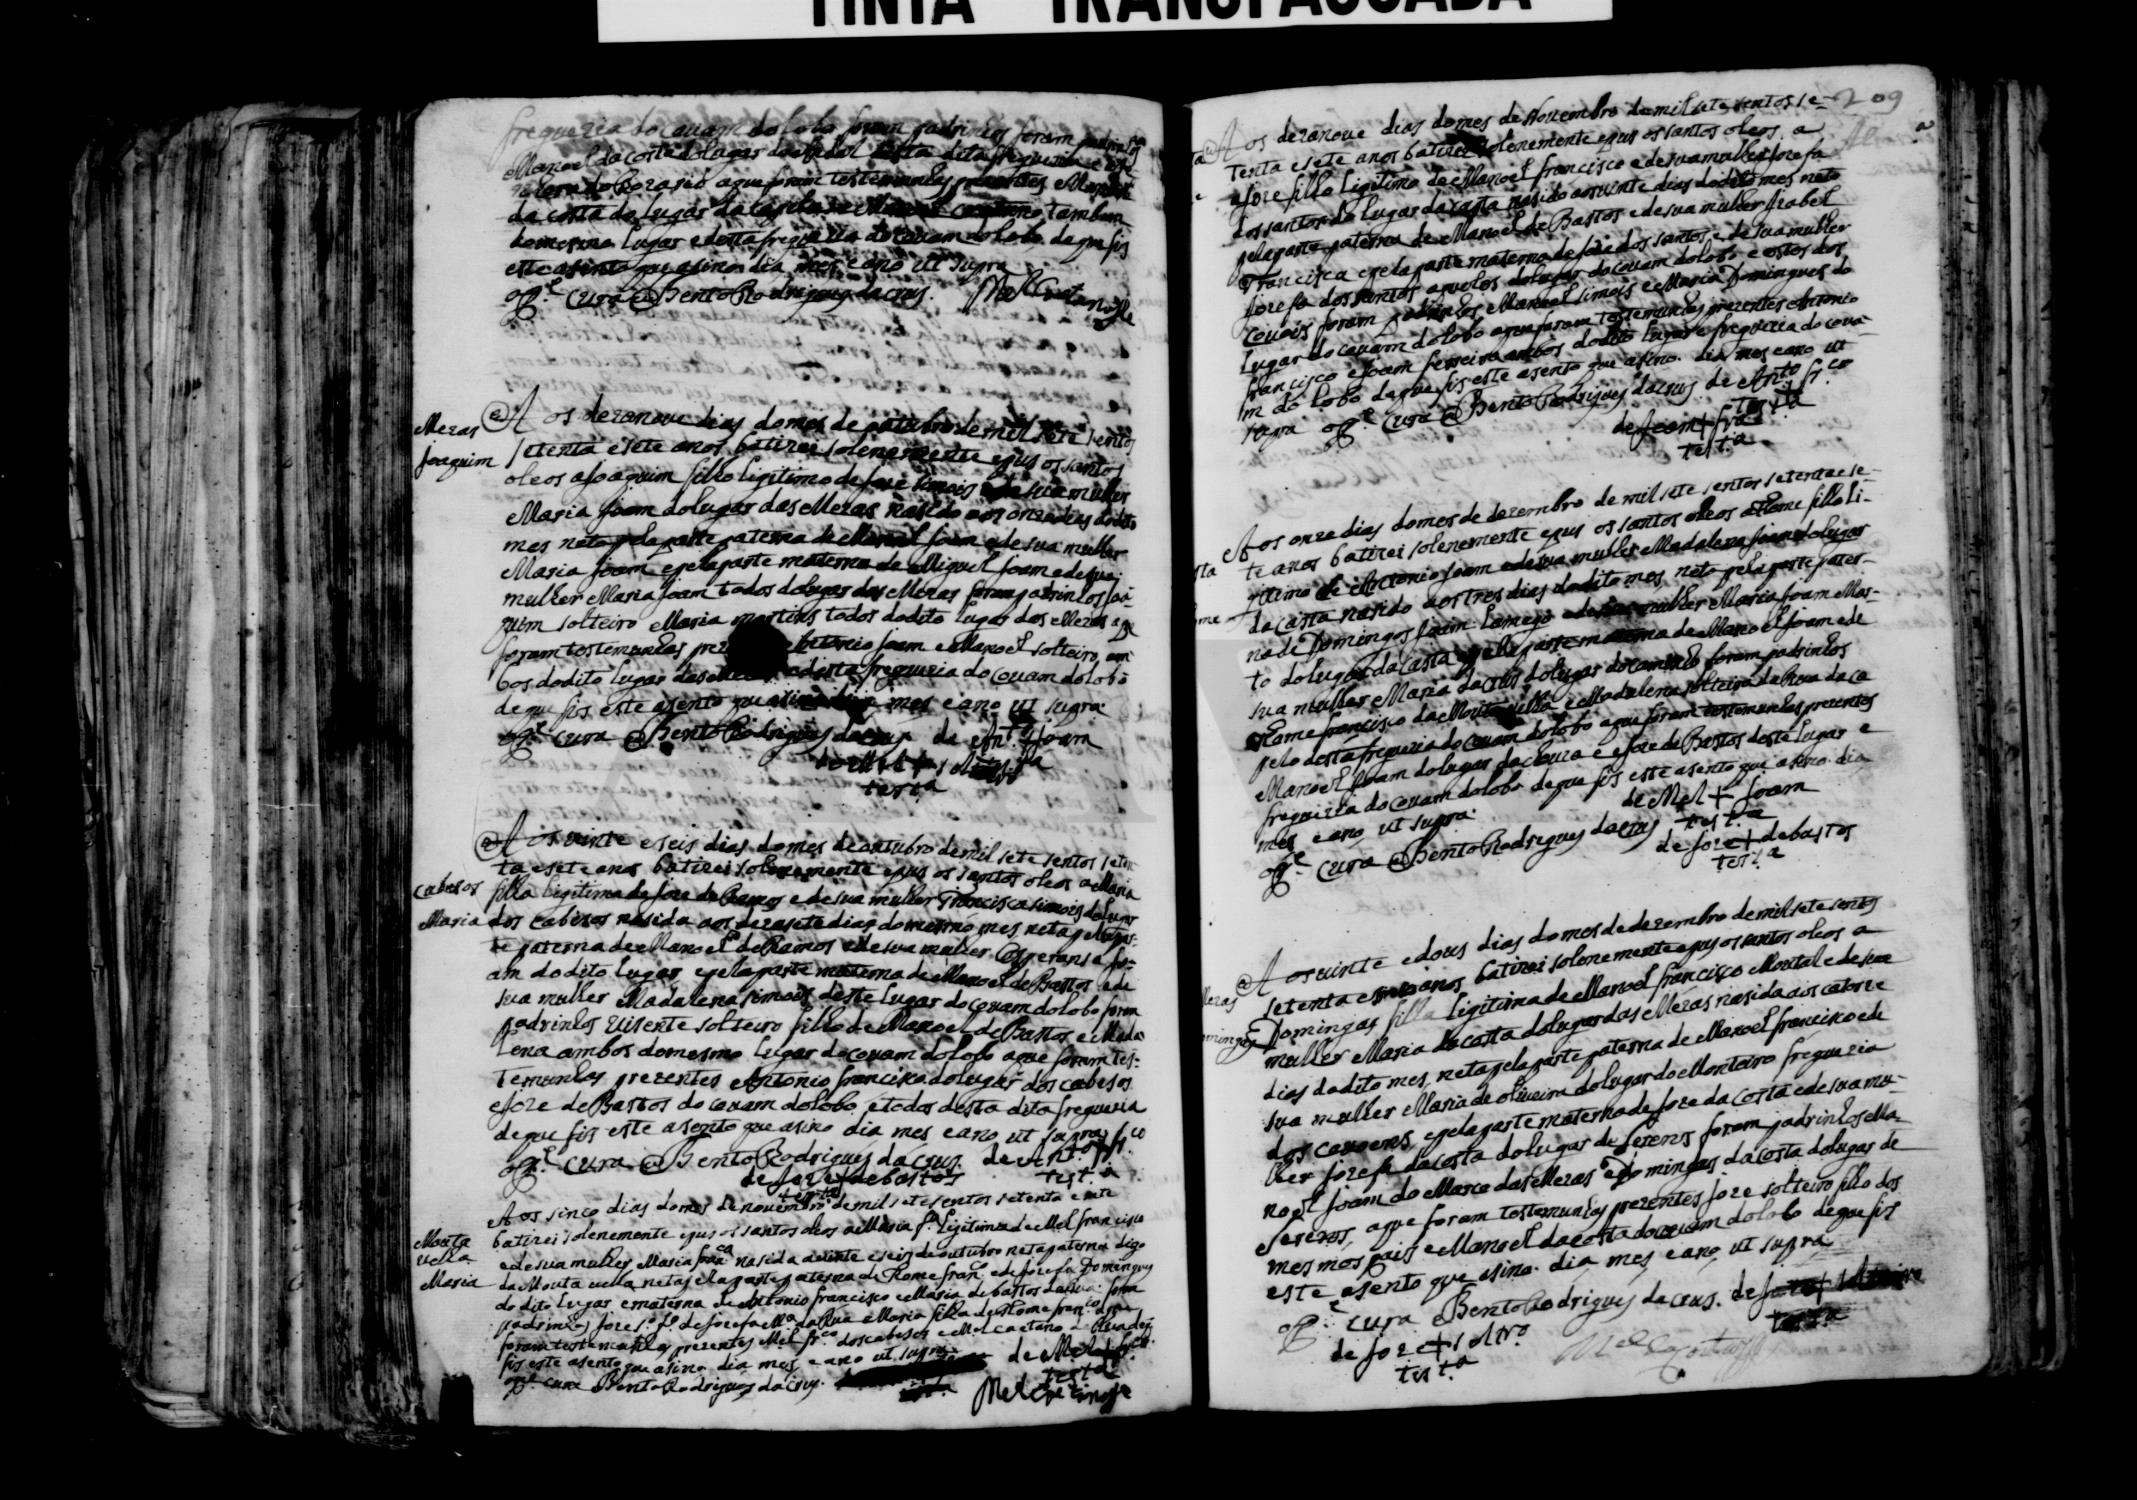 TINTA TRANSPASSADA
freguezia do couam do lobo foram padrinhos
Manoel da costa do lugar do desta dita freguezia e
do Rozario a que foram testemunhas prezentes Manoel
da costa do lugar da tambem
do mesmo lugar e desta freguezia do Couam do Lobo de que fis
este asento que asino dia mes e ano ut supra
O Cura Bento Rodrigues da crus. Mel Caetano
Mezas
Joaquim
Aos dezanove dias do mes de outubro de mil sete sentos
setenta e sete anos batizei solenemente e pus os santos
oleos a Joaquim filho ligitimo de Joze simois e de sua mulher
Maria Joam do lugar das Mezas nasido aos onze dias do dito
mes neto pela parte paterna de Manoel Joam e de sua mulher
Maria Joam e pela parte materna de Miguel Joam e de sua
mulher Maria Joam todos do lugar das Mezas foram padrinhos Joa-
quim solteiro e Maria martins todos do dito lugar das Mezas a que
foram testemunhas prez Antonio Joam e Manoel solteiro am
bos do dito lugar das e desta freguezia do Couam do lobo
de que fis este asento que asino dia mes e ano ut supra
O cura Bento Rodrigues da crus de Ant.º + Joam
test.a
Cabesos
Maria
Aos vinte e seis dias do mes de outubro de mil sete sentos seten
ta e sete anos batizei solenemente e pus os santos oleos a Maria
filha legitima de Joze de Ramos e de sua mulher Francisca simois do Lugar
dos Cabesos nasida aos dezasete dias do mesmo mes neta pela par-
te paterna de Manoel de Ramos e de sua mulher Esperansa Jo-
am do dito lugar e pela parte materna de Manoel de Bastos e de
sua mulher Madalena simois deste Lugar do Couam do lobo foram
padrinhos Visente solteiro filho de Manoel de Bastos e Mada
lena ambos do mesmo Lugar do couam do lobo a que foram tes-
temunhas prezentes Antonio francisco do lugar dos cabesos
e Joze de Bastos do couam do lobo e todos desta dita freguezia
de que fis este asento que asino dia mes e ano ut supra
O cura Bento Rodrigues da crus. de Ant.º + fr.co
de Joze + de bastos test.a
test.a
Mouta
velha
Maria
Aos sinco dias do mes de novembro de mil sete sentos setenta e sete
batizei solenemente e pus os santos oleos a Maria f.ª legitima de Mel francisco
e de sua mulher Maria fran.ca nasida a vinte e seis de outubro neta paterna digo
da Mouta velha neta pela parte paterna de Thome fran.co e de Jozefa Domingues
do dito lugar e materna de Antonio francisco e Maria de bastos da Rua foram
padrinhos Joze s.º f.º de Jozefa M.ª da Rua e Maria filha de Thome fran.co a que
foram testemunhas prezentes Mel fr.co dos cabesos e Mel caetano da Rua de q
fis este asento que asino dia mes e ano ut supra
O cura Bento Rodrigues da crus. de Mel + fr.co
test.a
209
Aos dezanove dias do mes de Novembro de mil sete sentos se-
tenta e sete anos batizei solenemente e pus os santos oleos a
a Joze filho Ligitimo de Manoel francisco e de sua mulher Jozefa
dos santos do lugar da casta nasido aos vinte dias do dito mes neto
pela parte paterna de Manoel de Bastos e de sua mulher Izabel
Francisca e pela parte materna de Joze dos santos e de sua mulher
Jozefa dos santos do lugar do couam do lobo e estes dos
Covois foram padrinhos Manoel simois e Maria Domingues do
Lugar do couam do lobo a que foram testemunhas prezentes Antonio
francisco e Joam ferreira ambos do dito lugar e freguezia do coua-
m do lobo de que fis este asento que asino. dia mes e ano ut
supra O Cura Bento Rodrigues da crus de Anto + fr.co
test.a
de Joam + fr.ª
test.a
Aos onze dias do mes de dezembro de mil sete sentos setenta e se-
te anos batizei solenemente e pus os santos oleos a Thome filho li-
gitimo de Antonio Joam e de sua mulher Madalena Joam do lugar
da Casta nasido aos tres dias do dito mes, neto pela parte pater-
na de Domingos Joam Lamego e de sua mulher Maria Joam Mar-
to do lugar da Casta e pela parte materna de Manoel Joam e de
sua mulher Maria da crus do lugar do foram padrinhos
Thome francisco da Mouta velha e Madalena solteira da Rua da ca
pelo desta freguezia do Couam do lobo a que foram testemunhas prezentes
Manoel Joam do lugar da e Joze de Bastos deste lugar e
freguezia do couam do lobo de que fis este asento que asino. dia
mes e ano ut supra. de Mel + Joam
O Cura Bento Rodrigues da crus test.a
de Joze + de bastos
test.a
Mezas
Domingas
Aos vinte e dous dias do mes de dezembro de mil sete sentos
setenta e sete anos batizei solenemente e pus os santos oleos a
Domingas filha legitima de Manoel francisco Moutal e de sua
mulher Maria da costa do lugar das Mezas nasida aos catorze
dias do dito mes, neta pela parte paterna de Manoel francisco e de
sua mulher Maria de oliveira do lugar do Monteiro freguezia
dos covoens, e pela parte materna de Joze da Costa e de sua mu-
lher Jozefa da costa do lugar de Serenos foram padrinhos Ma-
noel Joam do Marco das Mezas e Domingas da costa do lugar de
Serenos, a que foram testemunhas prezentes Joze solteiro filho dos
mesmos pais e Manoel da costa do couam do lobo de que fis
este asento que asino. dia mes e ano ut supra
O cura Bento Rodrigues da crus.
de Joze + soltro
test.a